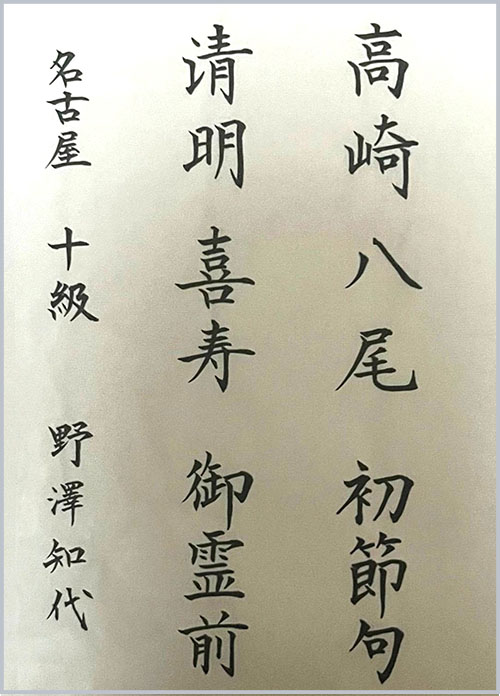 高崎 八尾 初節句
清明 喜寿 御霊前
名古屋 十級 野澤知代